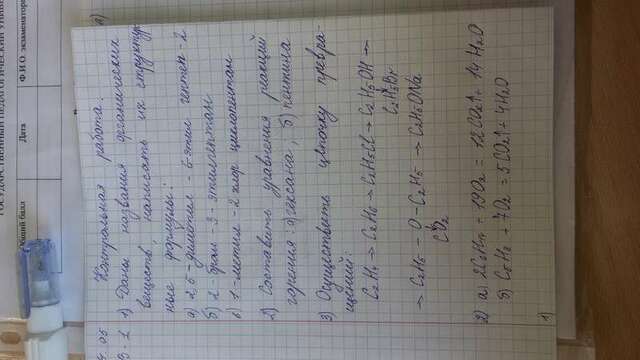 ГОСУДАРСТВЕННЫЙ ПЕДАГОГИЧЕСКИЙ
Общий балл Дата Ф.И.О. экзаменатора
В-1 Контрольная работа.
1) Даны названия органических
веществ, написать их структур
ные формулы:
а) 2,5-диметил - 5-этил гептен-2
б) 2-бром-3-этилгептан
в) 1-метил-2 хлор циклопентан
2) Составить уравнения реакций
горения: а) гексана, б) пентина
3) Осуществить цепочку превра-
щений:
C2H4 → C2H6 → C2H5Cl → C2H5OH →
C2H5Br
→ C2H5 - O - C2H5 → C2H5ONa
CO2
2) а) 2C6H14 = 19O2 = 12CO2↑ + 14 H2O
б) C5H8 + 7O2 = 5CO2↑ + 4H2O
1)